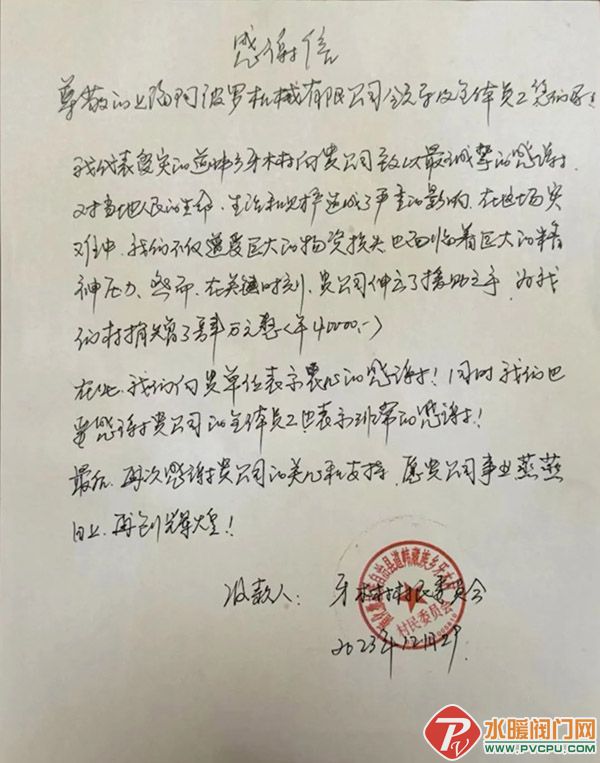 感谢信
尊敬的上海阿波罗机械有限公司领导及全体员工您们好！
我代表受灾的道帏乡牙木村向贵公司致以最诚挚的感谢，
对当地人民的生命、生活和财产造成了严重的影响，在这场灾
难中，我们不仅遭受巨大的物资损失也面临着巨大的精
神压力，然而，在关键时刻，贵公司伸出了援助之手，为我
们村捐赠了肆万元整（40000.-）
在此，我们向贵单位表示衷心的感谢！同时我们也
要感谢贵公司的全体员工也表示非常的感谢！
最后，再次感谢贵公司的关心和支持，愿贵公司事业蒸蒸
日上，再创辉煌！
收款人：牙木村村民委员会
2023年12月29
自治县道帏藏族乡牙木村
村民委员会
水暖阀门网
WWW.PVCPU.COM